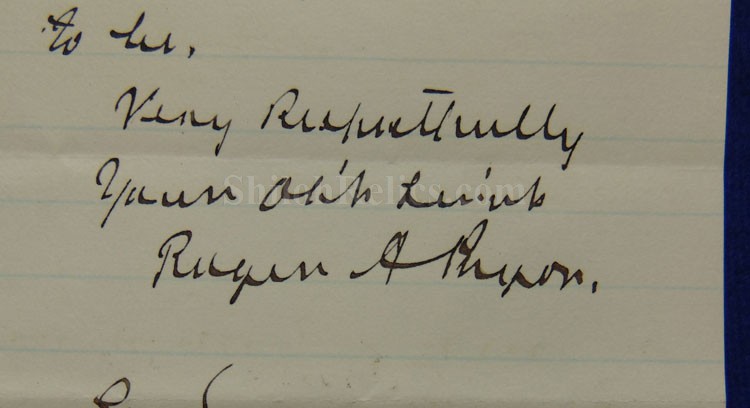 to be.
Very Respectfully
Your Ob't Serv't
Roger A Pryor.
ShilohRelics.com